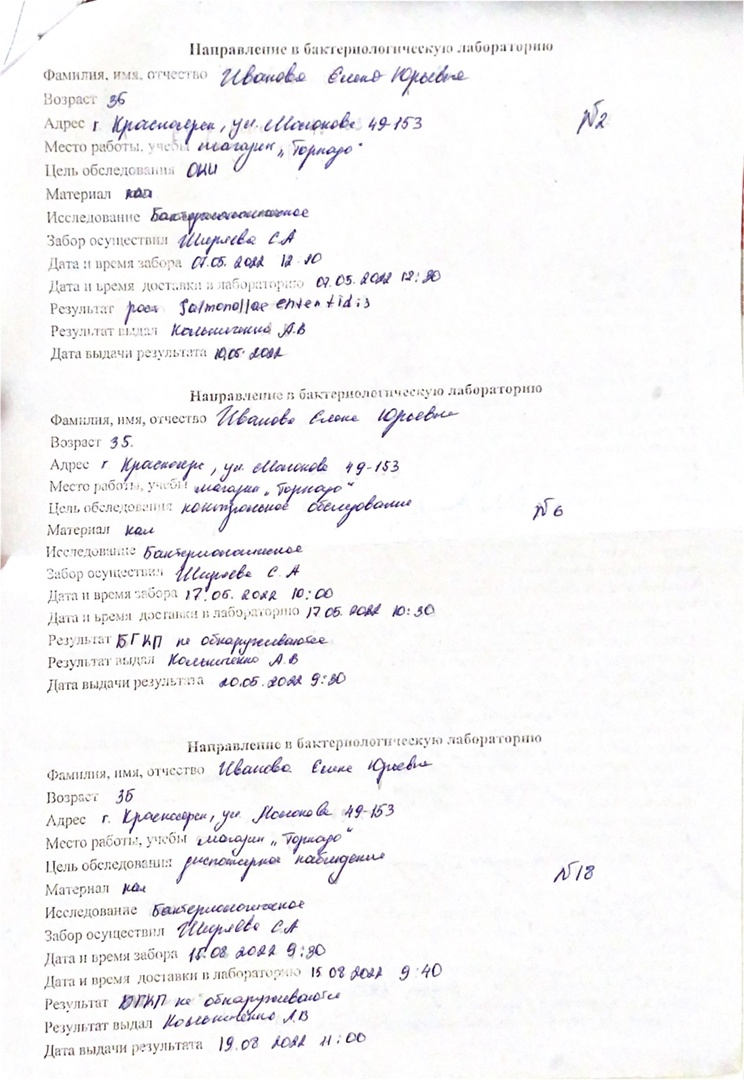 Направление в бактериологическую лабораторию
Фамилия, имя, отчество Иванова Елена Юрьевна
Возраст 36
Адрес г. Красногорск, ул. Молокова 49-153
№2
Место работы, учебы магазин „Торнадо"
Цель обследования ОКИ
Материал кал
Исследование Бактериологическое
Забор осуществил Ширяева С.А
Дата и время забора 07.05.2022 12:10
Дата и время доставки в лабораторию 07.05.2022 12:30
Результат рост Salmonellae enteritidis
Результат выдал А.В
Дата выдачи результата 10.05.2022
Направление в бактериологическую лабораторию
Фамилия, имя, отчество Иванова Елена Юрьевна
Возраст 35.
Адрес г. Красногорс, ул. Молокова 49-153
Место работы, учебы магазин „Торнадо"
Цель обследования контрольное обследование
№6
Материал кал
Исследование Бактериологическое
Забор осуществил Ширяева С. А
Дата и время забора 17.05.2022 10:00
Дата и время доставки в лабораторию 17.05.2022 10:30
Результат БГКП не обнаруживаются
Результат выдал А.В
Дата выдачи результата 20.05.2022 9:30
Направление в бактериологическую лабораторию
Фамилия, имя, отчество Иванова Елена Юрьевна
Возраст 36
Адрес г. Красногорск, ул. Молокова 49-153
Место работы, учебы магазин „Торнадо"
Цель обследования диспансерное наблюдение
№18
Материал кал
Исследование Бактериологическое
Забор осуществил Ширяева С.А
Дата и время забора 15.08 2022 9:30
Дата и время доставки в лабораторию 15 08 2022 9:40
Результат БГКП не обнаруживаются
Результат выдал А.В
Дата выдачи результата 19.08 2022 11:00